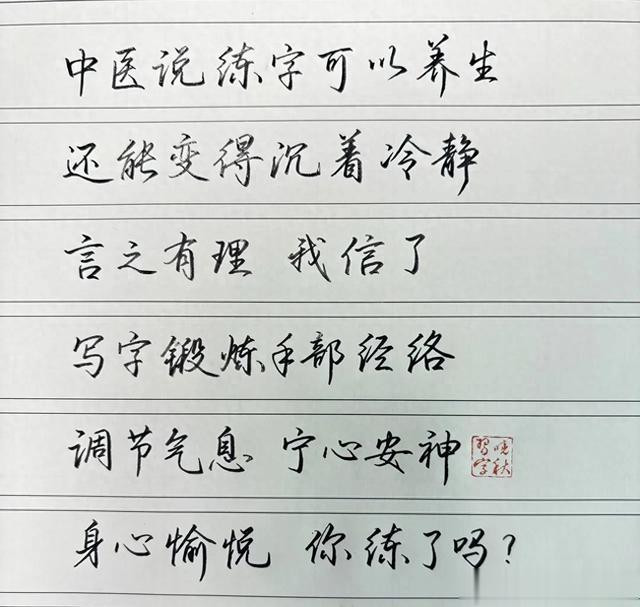 中医说练字可以养生
还能变得沉着冷静
言之有理 我信了
写字锻炼手部经络
调节气息 宁心安神
晚秋习字
身心愉悦 你练了吗?